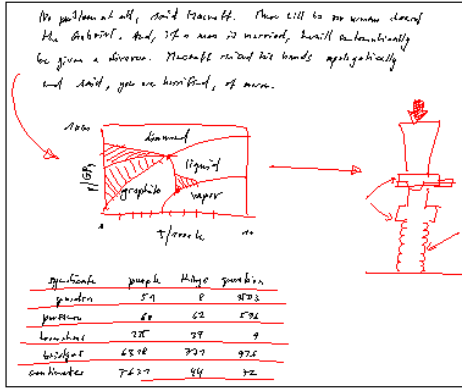 No problem at all, said Macraft. There will be no women aboard
the . And, if a man is married, he will automatically
be given a divorce. Macraft raised his hands apologetically
and said, you are horrified, of course.
1000
diamond
liquid
P/GPa
graphite
vapor
T/1000 K
10
syndicate people things question
51 8
pressure 68 62 596
39 9
bridges 6318 771 976
centimeter 7631 44 72